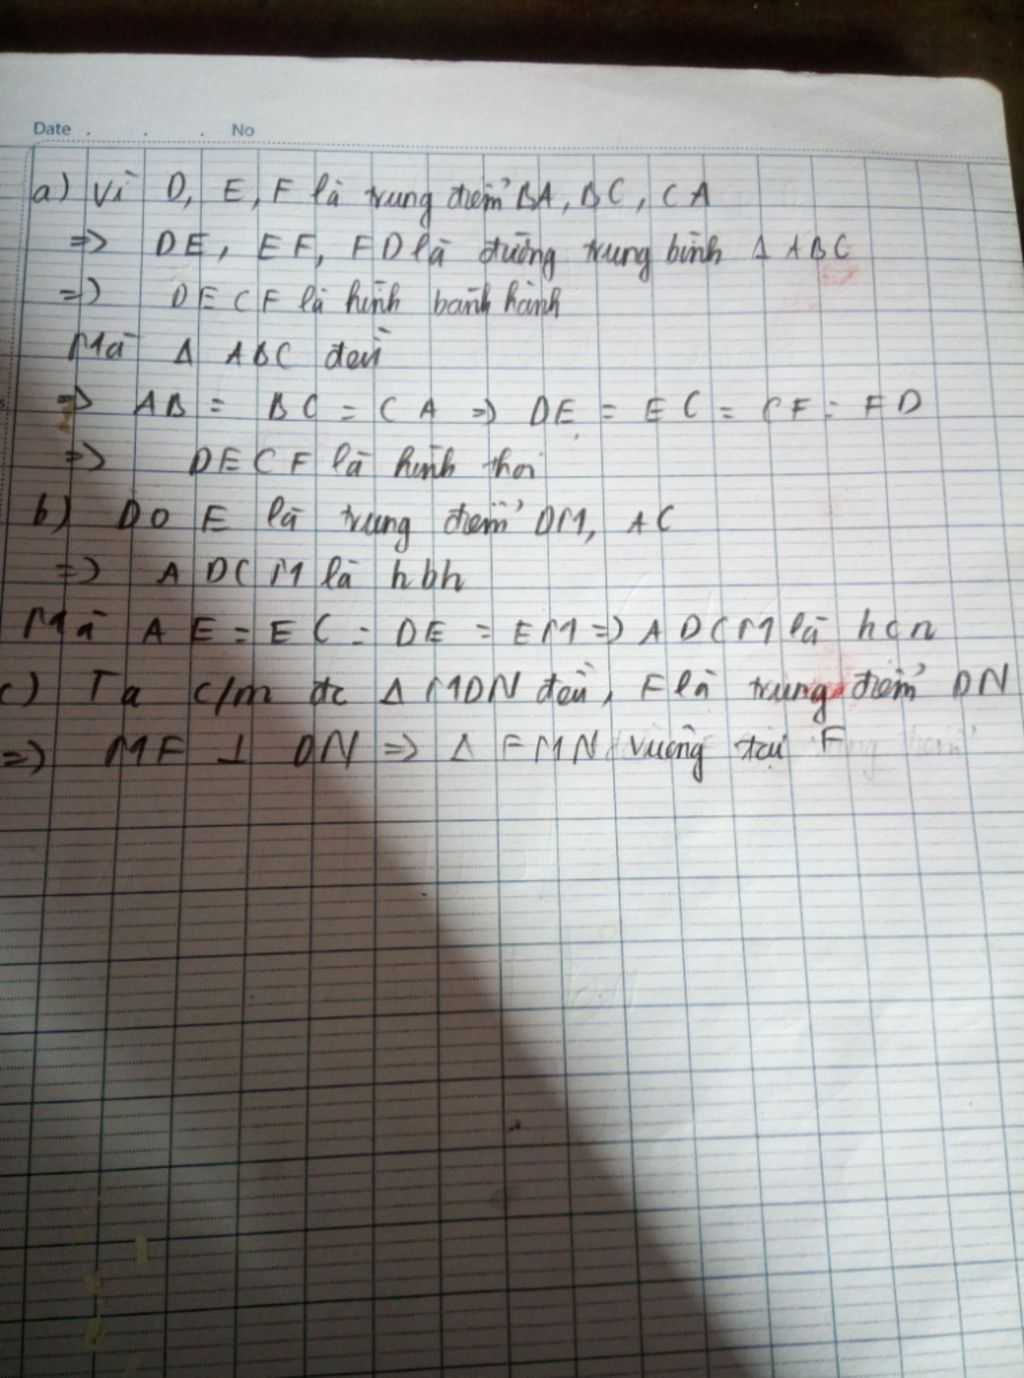 Date . . . No
a) Vì D, E, F là trung điểm BA, BC, CA
=> DE, EF, FD là đường trung bình Δ ABC
=> DECF là hình bành hành
Mà Δ ABC đều
=> AB = BC = CA => DE = EC = CF = FD
=> DECF là hình thoi
b) Do E là trung điểm DM, AC
=> ADCM là hbh
Mà AE = EC = DE = EM => ADCM là hcn
c) Ta c/m đc Δ MDN đều, F là trung điểm DN
=> MF ⊥ DN => Δ FMN vuông tại F